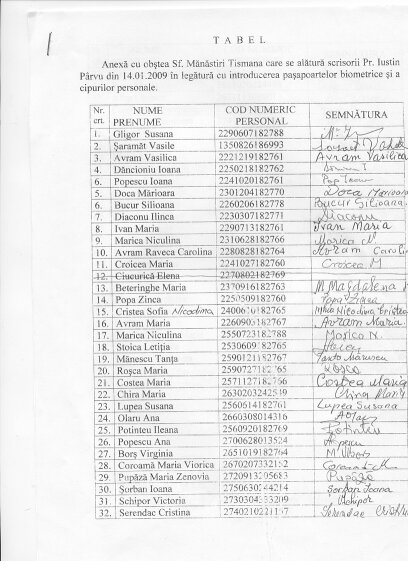 T A B E L
Anexă cu obștea Sf. Mănăstiri Tismana care se alătură scrisorii Pr. Iustin
Pârvu din 14.01.2009 în legătură cu introducerea pașapoartelor biometrice și a
cipurilor personale.
Nr. crt. NUME PRENUME COD NUMERIC PERSONAL SEMNĂTURA
1. Gligor Susana 2290607182788
2. Șaramăt Vasile 1350826186993
3. Avram Vasilica 2221219182761 Avram Vasilica
4. Dăncioniu Ioana 2250218182762
6. Popescu Ioana 2241020182761 Pop Ioana
5. Doca Mărioara 2301204182770 Doca Marioara
6. Bucur Silioana 2260206182778 Bucur Silioana
7. Diaconu Ilinca 2230307182771 Diaconu
8. Ivan Maria 2290713182761 Ivan Maria
9. Marica Niculina 2310628182766 Marica N
10. Avram Raveca Carolina 2280828182764 Avram Carolina
11. Croicea Maria 2241027182760 Croicea M
12. Ciucurică Elena 2270802182769
13. Beteringhe Maria 2370916182763 M Magdalena
14. Popa Zinca 2250509182760 Popa Zinca
15. Cristea Sofia Nicodima 2400616182765
16. Avram Maria 2260905182767 Avram Maria
17. Marica Niculina 2550723182788
18. Stoica Letiția 2530609182765
19. Mănescu Tanța 2590121182767 Tanta Mănescu
20. Roșca Maria 2590727182765 Roșca
21. Costea Maria 2571127182766 Costea Maria
22. Chira Maria 2630203242539
23. Lupea Susana 2560614182761 Lupea Susana
24. Olaru Ana 2660308014316
25. Potinteu Ileana 2560920182769 Potinteu
26. Popescu Ana 2700628013524
27. Borș Virginia 2651019182764
28. Coroamă Maria Viorica 2670207332152
29. Pupăză Maria Zenovia 2720913205683 Pupăză
30. Șorban Ioana 2750630244214 Șorban Ioana
31. Schipor Victoria 2730304333209 Schipor
32. Serendae Cristina 2740210221157 Serendae